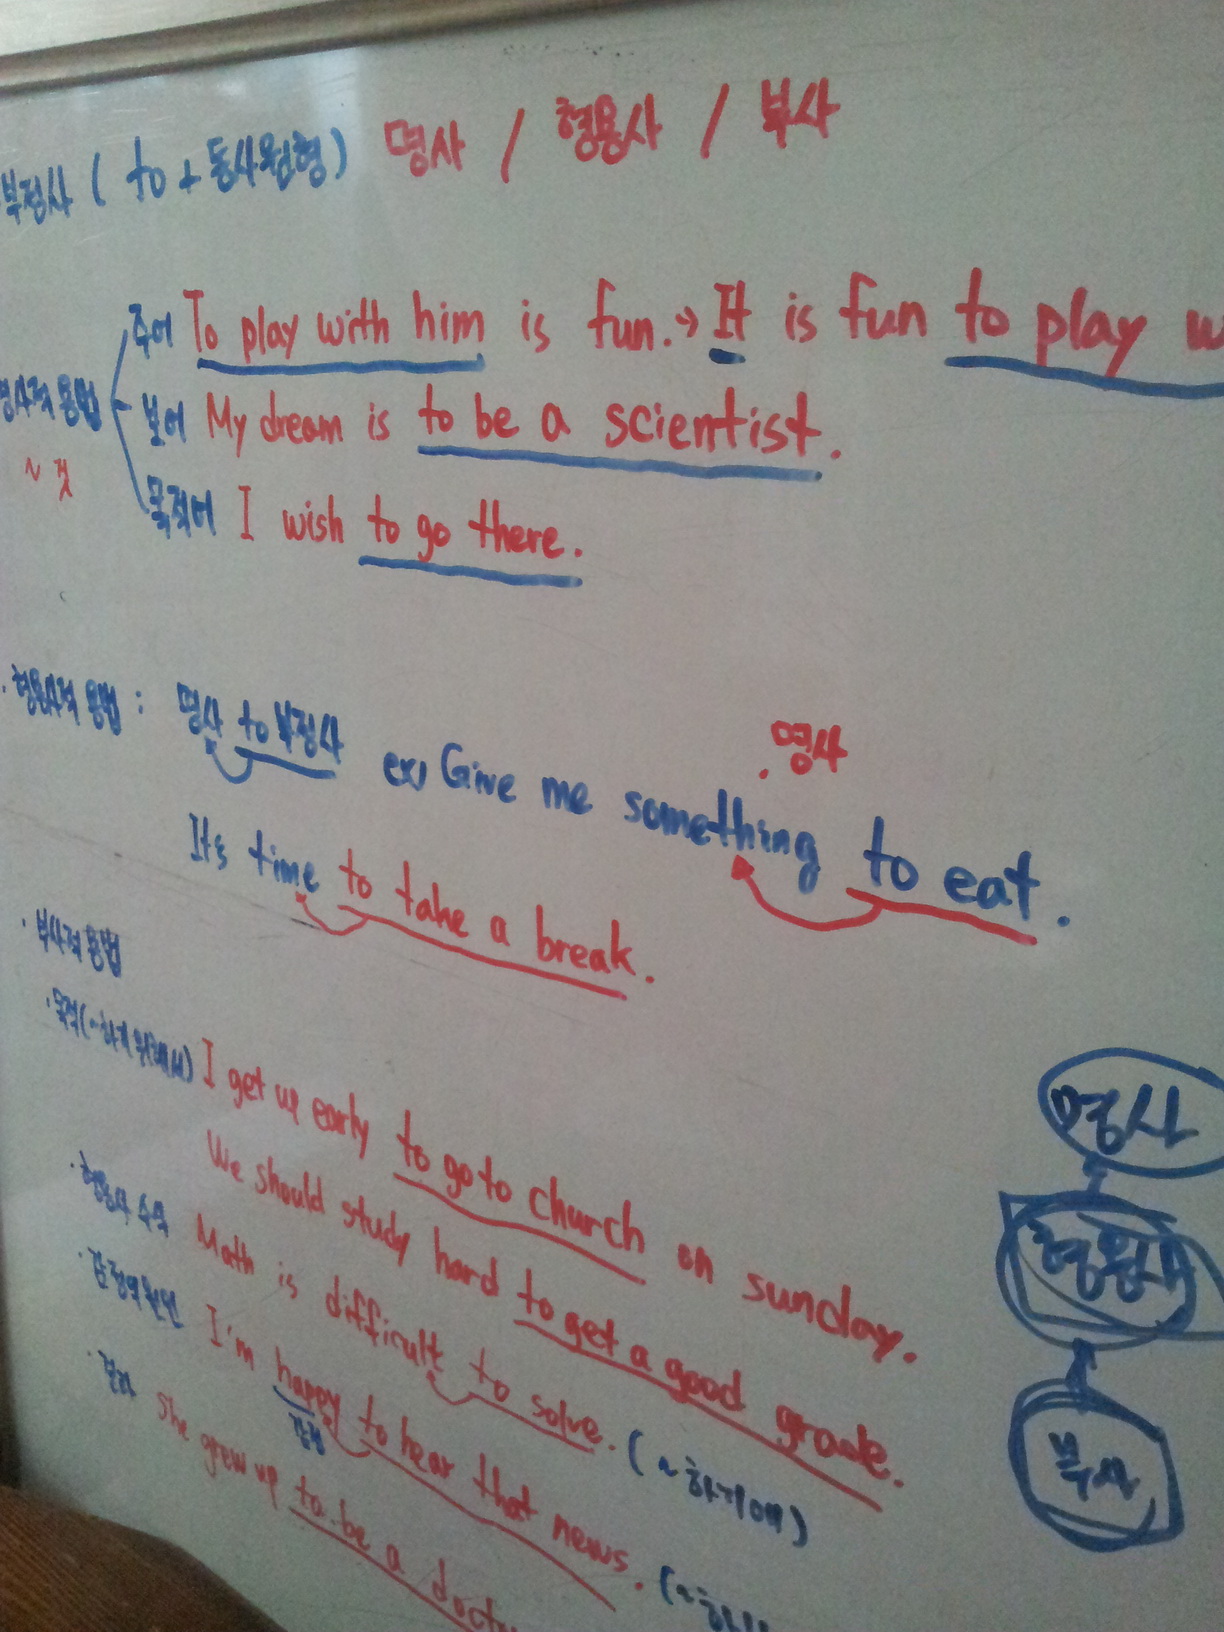 부정사 ( to + 동사원형 ) 명사 / 형용사 / 부사
주어 To play with him is fun. → It is fun to play w
명사적 용법
보어 My dream is to be a scientist.
~ 것
목적어 I wish to go there.
· 형용사적 용법 : 명사 to부정사 ex) Give me something to eat.
명사
It's time to take a break.
· 부사적 용법
· 목적(~하기 위해서) I get up early to go to church on sunday.
We should study hard to get a good grade.
· 형용사 수식 Math is difficult to solve. (~하기에)
· 감정의 원인 I'm happy to hear that news. (~하
감정
· 결과 She grew up to be a docto
명사
형용사
부사